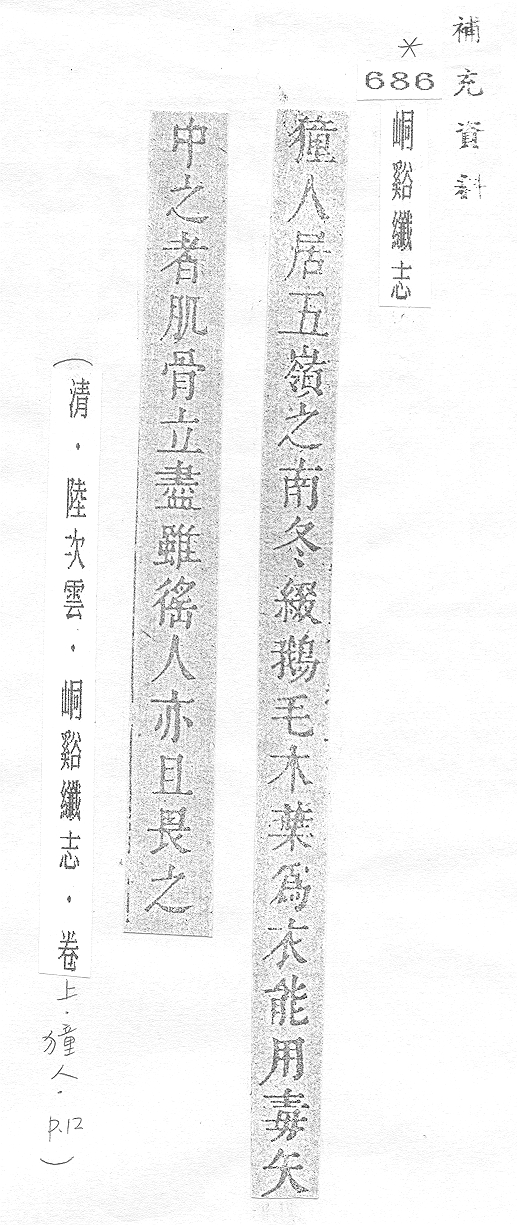 補充資料
*
686
峒谿纖志
獞人居五嶺之南冬綴鵝毛木葉為衣能用毒矢
中之者肌骨立盡雖徭人亦且畏之
(清．陸次雲．峒谿纖志．卷上．獞人．P.12)